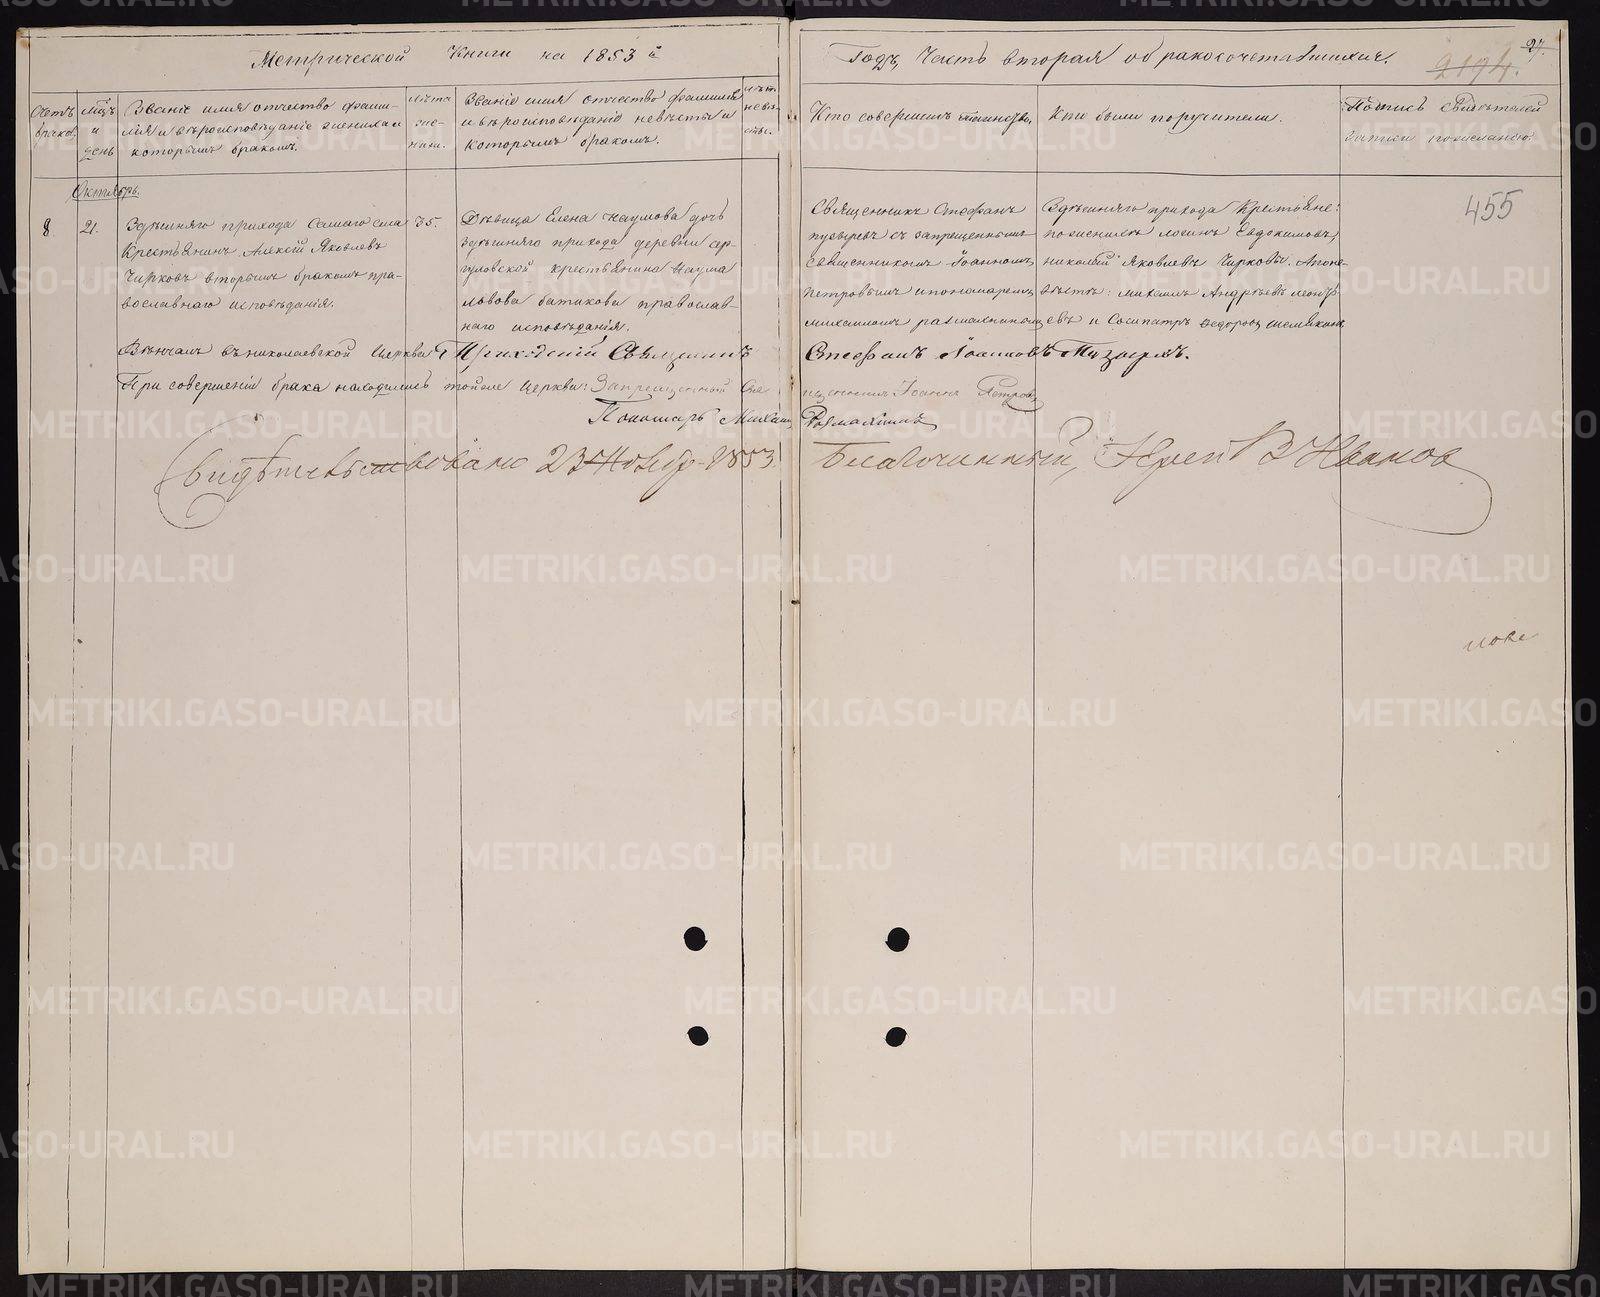 Метрической Книги на 1853й
Годъ, Часть вторая о бракосочетавшихся.
27.
2194.
Счетъ браковъ
Мцъ и день
Званіе имя отчество фами-
лія и вѣроисповѣданіе жениха и
которымъ бракомъ.
лѣта
же-
ниха.
Званіе имя отчество фамилія
и вѣроисповѣданіе невѣсты и
которымъ бракомъ.
лѣта
невѣ-
сты.
Кто совершалъ таинство.
Кто были поручители.
Подпись свидѣтелей
записи по желанію
Октябрь.
8.
21.
Здѣшняго прихода самаго села
Крестьянинъ Алексій Яковлевъ
Чирковъ вторымъ бракомъ пра-
вославнаго исповѣданія.
35.
Дѣвица Елена Наумова дочь
здѣшняго прихода деревни
крестьянина Наума
православ-
наго исповѣданія.
Священникъ Стефанъ
Пузыревъ съ запрещеннымъ
священникомъ Іоанномъ
Петровымъ и пономаремъ
Михаиломъ
Здѣшняго прихода Крестьяне:
по женихѣ Евдокимовъ,
Николай Яковлевъ Чирковы. А по не-
вѣстѣ: Михаилъ Андреевъ
и Сосипатръ Федоровъ
455
Вѣнчалъ въ Николаевской Церкви Приходскій Священникъ
Стефанъ Іоанновъ Пузыревъ.
При совершеніи брака находились тойже Церкви: Запрещенный Свя-
щенникъ Іоаннъ Петровъ
Пономарь Михаилъ
Свидѣтельствовано 23 Ноября 1853.
Благочинный, Іерей В Ивановъ
METRIKI.GASO-URAL.RU